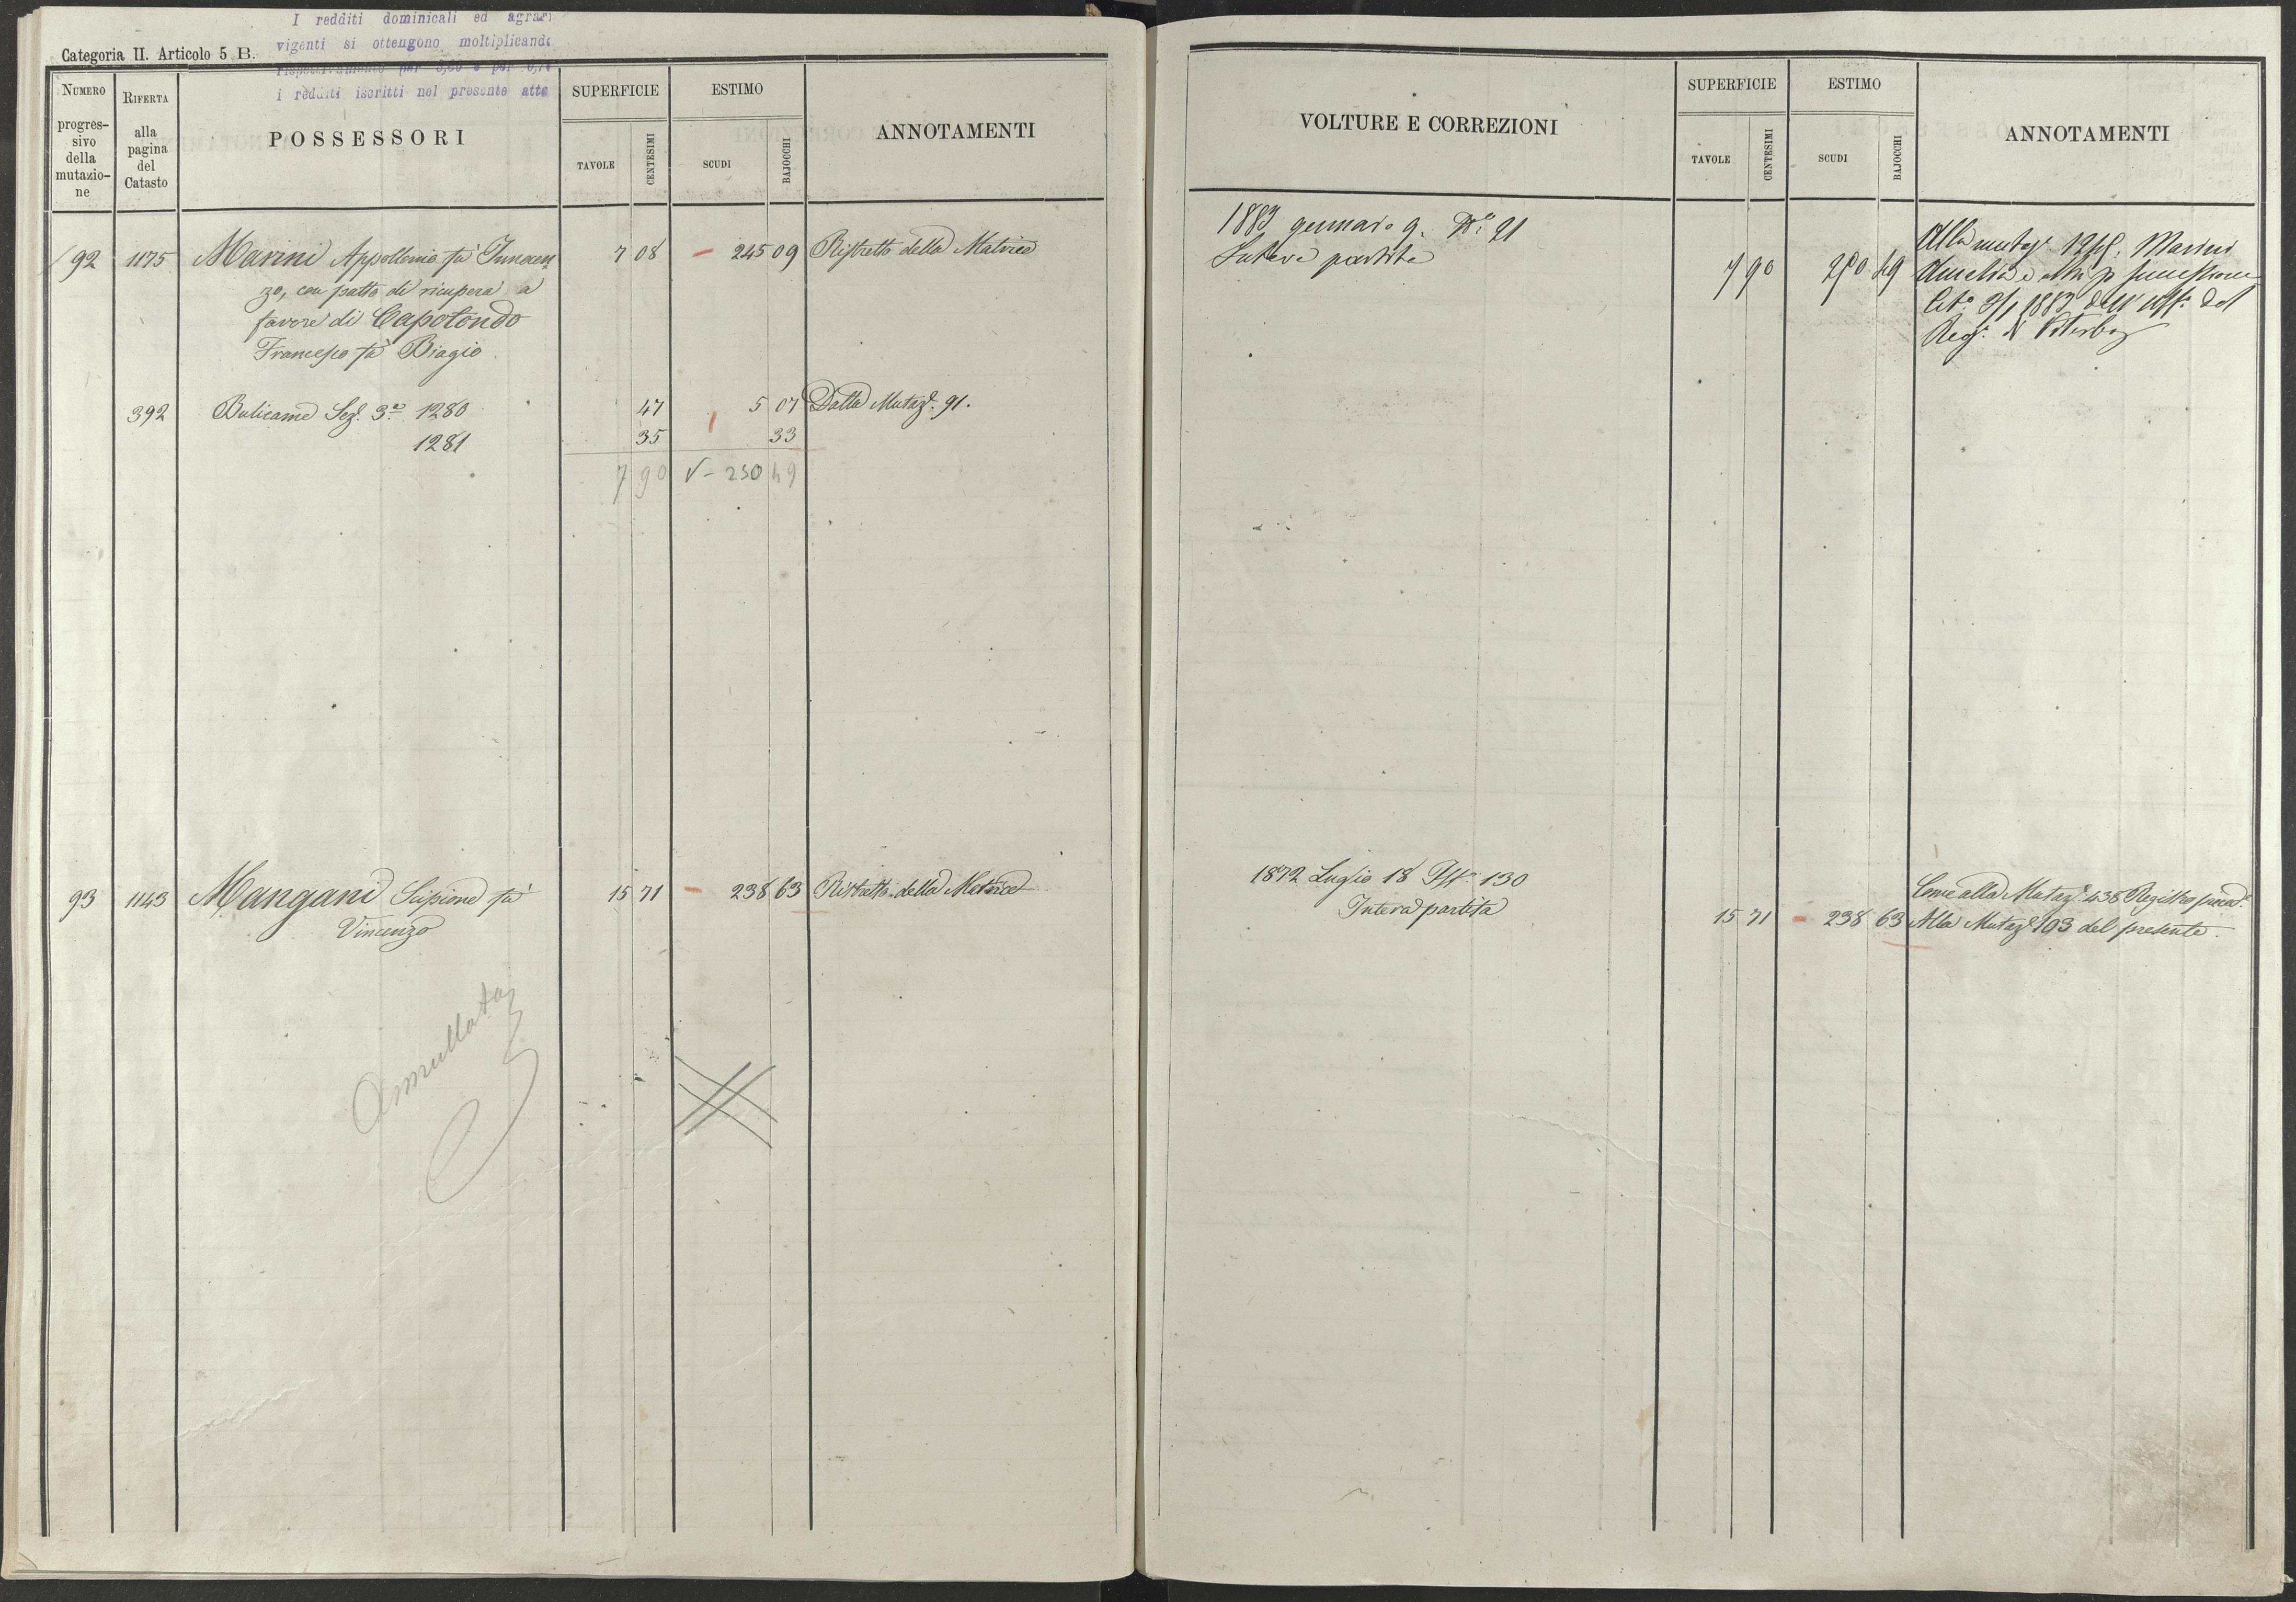 I redditi dominicali ed agrari
vigenti si ottengono moltiplicando
i redditi iscritti nel presente atto
Categoria II. Articolo 5 B.
NUMERO
progres-
sivo
della
mutazio-
ne
RIFERTA
alla
pagina
del
Catasto
POSSESSORI
SUPERFICIE
TAVOLE
CENTESIMI
ESTIMO
SCUDI
BAJOCCHI
ANNOTAMENTI
92 1175 Marini Appollonio fù Innocen 7 08 – 245 09 Ristretto della Matrice
zo, con patto di ricupera a
favore di Capotondo
Francesco fù Biagio.
392 Bulicame Sez. 3ª 1280 47 5 07 Dalla Mutaz. 91.
1281 35 33
7 90 √ – 250 49
93 1143 Mangani Scipione fù 15 71 – 238 63 Ristretto della Matrice
Vincenzo
Annullata
VOLTURE E CORREZIONI
SUPERFICIE
TAVOLE
CENTESIMI
ESTIMO
SCUDI
BAJOCCHI
ANNOTAMENTI
1883 gennaio 9. Nº 21
Intera partita 7 90 250 49
Alla mutaz. Marini
Amelia e altri p successione
1883 dell' Uff. del
Reg. di Viterbo
1872 Luglio 18 130
Intera partita 15 71 – 238 63
Come alla Mutaz. 438 Registro preced.
Alla Mutaz. 103 del presente.